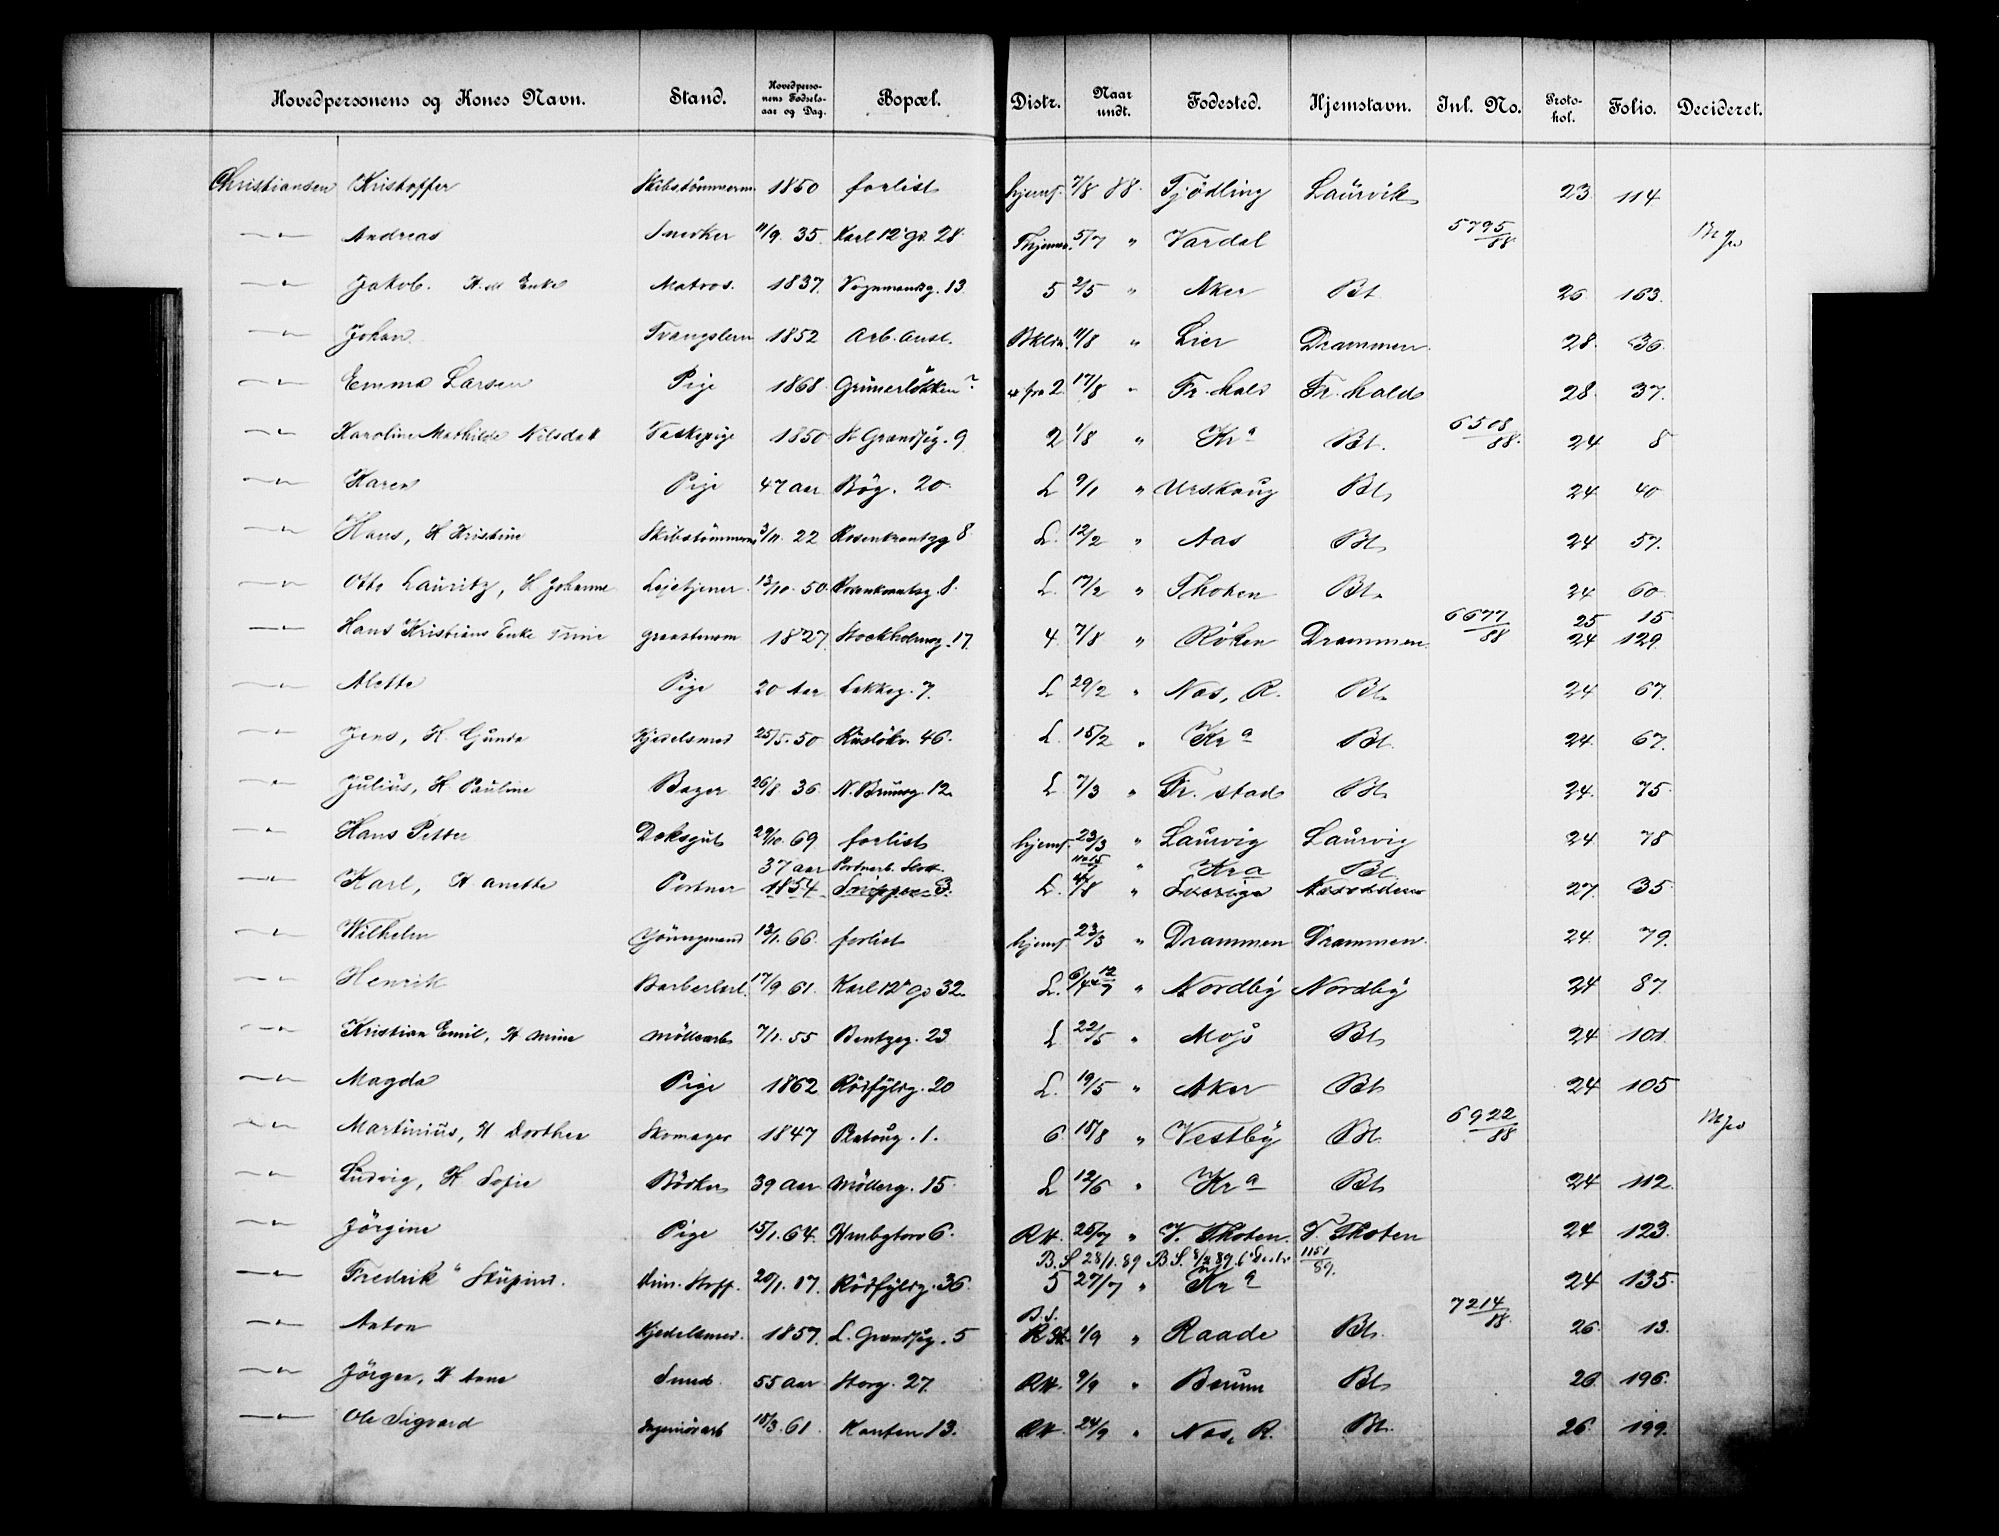 Hovedpersonens og Kones Navn. Stand. Hovedpersonens Fødselsaar og Dag. Bopæl. Distr. Naar undt. Fødested. Hjemstavn. Inl. No. Protokol. Folio. Decideret.
Christiansen Kristoffer 1850 forlist hjemf. 7/8 88. Tjødling Laurvik 23 114
—"— Andreas Snedker 11/9 35. Karl 12' gd. 28 5/7 " Vardal 5795/88
—"— Jakob. Enke Matros. 1837. Vognmandsg. 13 5 2/5 " Aker Bt 163.
—"— Johan Tvangslem 1852 Arb. anst. 11/8 " Lier Drammen 28. 36.
—"— Emma Larsen Pige 1868 Grünerløkken? 2. 17/8 " Fr. hald Fr. hald 28. 37.
—"— Karoline Mathilde Nilsdatt Vaskepige 1850 N Grændsg. 9 2 1/8 " Kr a Bt. 6508/88. 24 8
—"— Karen Pige 47 aar Bøg. 20. L 9/1 " Urskoug Bt, 24 40
—"— Hans, H Kristine 3/11. 22 Rosenkrantzg 8. L. 12/2 " Aas Bt, 24 57.
—"— Otto Lauritz, H Johanne Lejetjener. 13/10. 50. Rosenkrantsg. 8. L. 17/2 " Thoten Bt. 24 60.
25 15
—"— Hans Kristians Enke Trine 1827 Stockholmsg. 17. 4. 7/8 " Røken Drammen 6677/88 24 129.
—"— Alette Pige 20 Aar Lakkeg. 7. L 29/2 " Nas, R. Bt. 24 67.
—"— Jens, H. Gunda Kjedelsmed 25/5. 50 Ruseløkv. 46. L. 15/2 " Kr a Bt. 24. 67.
—"— Julius, H. Pauline Bager 26/8 36. N. Brunsg. 12. L 7/3 " Fr. stad Bt, 24. 75.
—"— Hans Petter Doksgut 29/10. 69 forlist hjemf. 23/3 " Laurvig Laurvig 24. 78
37 aar Kr a Bt.
—"— Karl, H anette Portner 1854 L. 4/8 " 27. 35.
—"— Wilhelm Youngmand 13/1. 66. forlist hjemf. 23/3 " Drammen Drammen. 24. 79.
—"— Henrik 17/9 61. Karl 12' gd 32. L. 12/7 " Nordby Nordby 24 87.
—"— Kristian Emil, H Mine Møllearb 7/1. 55 Bentzeg. 23 L 22/5 " Moss Bt, 24 101.
—"— Magda Pige 1862 Rødfyldsg. 20 L. 19/5 " Aker Bt 24 105
—"— Martinius, H Dorthea Skomager 1847 Platoug. 1. 6. 18/8 " Vestby Bt. 6922/88
—"— Ludvig, H Sofie Bødker 39 aar Møllerg. 15. L 12/6 " Kr a Bt 24 112.
—"— Jørgine Pige 15/1. 64. 6. 25/7 " V. Thoten. V. Thoten 24 123.
B. S. 28/1. 89 B. S. 1151/89.
—"— Fredrik " 20/1. 17. Rødfyldsg. 36. 5 27/7 " Kr a 24 135.
B. S.
—"— Anton Kjedelsmed. 1857. L. Grændsg. 5 1/9 " Raade Bt. 7214/88 26. 13.
—"— Jørgen, H Anne Smed. 55 aar Storg. 27. 9/9 " Berum Bt, 26. 196.
—"— Ole Sigvard 18/3. 61. Kanten 13. 24/9 " Nas, R. Bt. 26. 199.